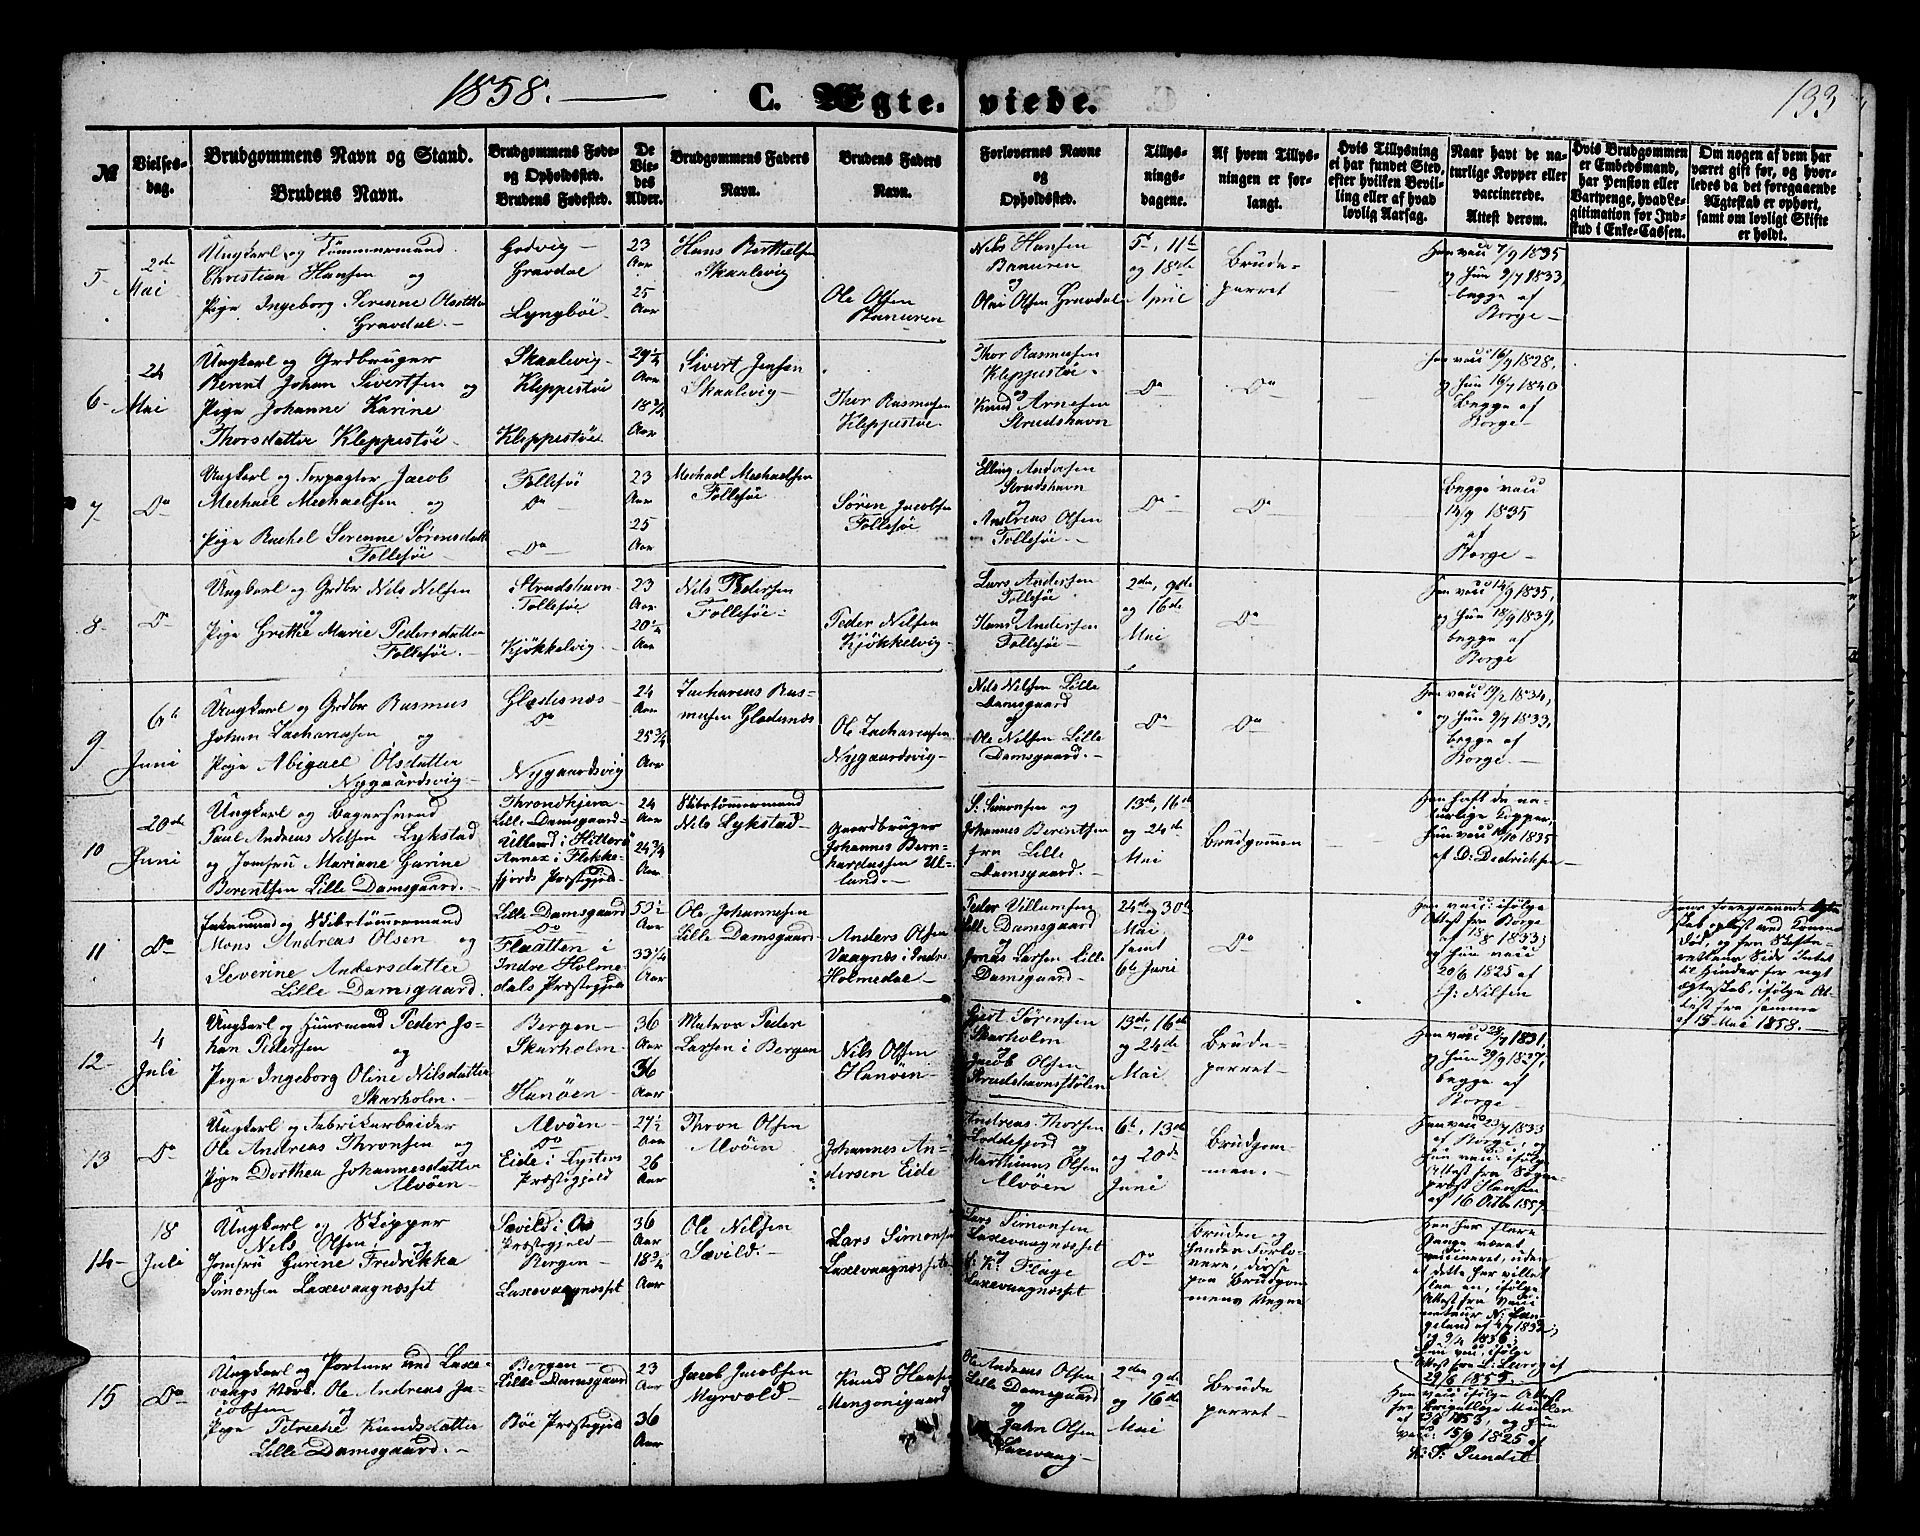 1858. C. Ægte. viede. 133
№
Vielses-
dag.
Brudgommens Navn og Stand.
Brudens Navn.
Brudgommens Føde-
og Opholdssted.
Brudens Fødested.
De
Vie-
des
Alder.
Brudgommens Faders
Navn.
Brudens Faders
Navn.
Forlovernes Navne
og
Opholdssted.
Tillys-
nings-
dagene.
Af hvem Tillys-
ningen er for-
langt.
Hvis Tillysning
ei har fundet Sted,
efter hvilken Bevil-
ling eller af hvad
lovlig Aarsag.
Naar havt de na-
turlige Kopper eller
vaccinerede.
Attest derom.
Hvis Brudgommen
er Embedsmand,
har Pension eller
Vartpenge, hvad Le-
gitimation for Ind-
skud i Enke-Cassen.
Om nogen af dem har
været gift før, og hvor-
ledes da det foregaaende
Ægteskab er ophørt,
samt om lovligt Skifte
er holdt.
5
2de
Mai
Ungkarl og Tømmermand
Christian Hansen og
Pige Ingeborg Serenne Olsdatter
Gravdal.
Godvig
Gravdal
Lyngbøe
23
Aar
25
Aar
Hans Berthelsen
Skaalevig
Ole Olsen
Banuren
Nils Hansen
Banuren
og
Olai Olsen Gravdal
5t, 11te
og 18de
April
Brude-
parret
Han vacc 7/9 1835
og Hun 9/7 1833,
begge af
Borge
6
24
Mai
Ungkarl og Grdbruger
Berent Johan Sivertsen og
Pige Johanne Karine
Thorsdatter Kleppestøe
Skaalevig
Kleppestøe
Kleppestøe
29 1/4
Aar
18 3/4
Aar
Sivert Jensen
Skaalevig
Thor Rasmusen
Kleppestøe
Thor Rasmusen
Kleppestøe
og
Knud Arnesen
Strudshavn
Do
Do
Han vacc 16/9 1828,
og Hun 16/7 1840
Begge af
Borge
7
Do
Ungkarl og Forpagter Jacob
Mechael Mechaelsen og
Pige Rachel Serenne Sørensdatter
Follesøe
Follesø
Do
Do
23
Aar
25
Aar
Mechael Mechaelsen
Follesøe
Søren Jacobsen
Follesøe
Elling Andersen
Strudshavn
og
Andreas Olsen
Follesøe
Do
Do
Begge vacc
14/9 1835
af
Borge
8
Do
Ungkarl og Grdbr Nils Nilsen
og
Pige Grethe Marie Pedersdatter
Follesøe
Strudshavn
Follesøe
Kjøkkelvig
23
Aar
20 1/4
Aar
Nils Pedersen
Follesøe
Peder Nilsen
Kjøkkelvig
Lars Andersen
Follesøe
og
Hans Andersen
Follesøe
2den, 9de
og 16de
Mai
Do
Han vacc 14/9 1835,
og Hun 18/9 1839,
begge af
Borge
9
6te
Juni
Ungkarl og Grdbr Rasmus
Johan Zachariasen og
Pige Abigael Olsdatter
Nygaardsvig
Gledesnæs
Do
Nygaardsvig
24
Aar
25 3/4
Aar
Zacharias Ras-
musen Gledesnæs
Ole Zachariasen
Nygaardsvig
Nils Nilsen Lille
Damsgaard
og
Ole Nilsen Lille
Damsgaard.
Do
Do
Han vacc 19/2 1834,
og Hun 9/7 1833,
begge af
Borge
10
20de
Juni
Ungkarl og Bagersvend
Paul Andreas Nilsen Lykstad
og Jomfru Mariane Garine
Berentsen Lille Damsgaard.
Throndhjem
Lille Damsgaard
Ulland i Hitterø
Annex i Flekke-
fjords Præstgjeld
24
Aar
24 3/4
Aar
Skibstømmermand
Nils Lykstad
Gaardbruger
Johannes Bern-
hardussen Ul-
land.
S: Simonsen og
Johannes Berentsen
fra Lille
Damsgaard.
13de, 16de
og 24de
Mai
Brudgommen
Han haft de na-
turlige Kopper,
Hun vacc 10/10 1835
af D: Dedrichsen
11
Do
Enkemand og Skibstømmermand
Mons Andreas Olsen og
Severine Andersdatter
Lille Damsgaard.
Lille Damsgaard
Do
Flaatten i
Indre Holme-
dals Præstgjeld
53 1/2
Aar
33 1/4
Aar
Ole Johannesen
Lille Damsgaard
Anders Olsen
Vaagnæs i Indre
Holmedal
Peder Villumsen
Lille Damsgaard
og
Jonas Larsen Lille
Damsgaard
24de og 30te
Mai
samt
6te Juni
Do
Han vacc: ifølge
Attest fra Borge
af 18/8 1833,
og Hun vacc
20/6 1825 af
J: Nilsen
Hans foregaaende Ægte
skab opløst ved Konens
Død, og fra Skifte-
rettens Side Intet
til Hinder for nyt
Ægteskab, ifølge At-
test fra samme
af 15 Mai 1858.
12
4
Juli
Ungkarl og Huusmand Peder Jo-
han Pedersen og
Pige Ingeborg Oline Nilsdatter
Skarholm.
Bergen
Skarholm
Hanøen
36
Aar
36
Aar
Matros Peder
Larsen i Bergen
Nils Olsen
Hanøen
Giert Sørensen
Skarholm
og
Jacob Olsen
Strudshavnstølen
13de, 16de
og 24de
Mai
Brude-
parret
Han vacc 29/7 1831,
og Hun 29/9 1827,
begge af
Borge
13
Do
Ungkarl og Fabrikarbeider
Ole Andreas Thronsen og
Pige Dorthea Johannesdatter
Alvøen
Alvøen
Do
Eide i Tysnes
Præstgjeld
27 1/2
Aar
26
Aar
Thron Olsen
Alvøen
Johannes An-
dersen Eide
Andreas Thorsen
Loddefjord
og
Marthinus Olsen
Alvøen
6te, 13de
og 20de
Juni
Brudgom-
men.
Han vacc 23/7 1833
af Borge, og
Hun vacc: ifølge
Attest fra Sogne-
præst Hansen
af 16 Octbr 1857
14
18
Juli
Ungkarl og Skipper
Nils Olsen og
Jomfru Garine Fredrikka
Simonsen Laxevaagnæsset
Sævild i Os
Præstegjeld
Bergen
Laxevaagnæsset
36
Aar
18 3/4
Aar
Ole Nilsen
Sævild.
Lars Simonsen
Laxevaagnæsset
Lars Simonsen
Laxevaagnæsset
og
S: K: Flage
Laxevaagnæsset
Do
Bruden og
hendes Forlo-
vere, disse
paa Brudgom
mens Vegne
Han har flere
Gange været
vaccineret, uden
at dette har villet
slaa an, ifølge
Attest fra vacci
nateur N: Lan-
geland af 4/7 1832
og 9/4 1836;
Hun vacc, ifølge
Attest fra L: Levig af
29/6 1855.
15
Do
Ungkarl og Portner ved Laxe-
vaags Værk Ole Andreas Ja-
cobsen og
Pige Petrecke Knudsdatter
Lille Damsgaard.
Bergen
Lille Damsgaard
Bøe Præstgjeld
23
Aar
36
Aar
Jacob Jacobsen
Myrvold
Knud Hansen
Mengonigaard
Ole Andreas Olsen
Lille Damsgaard
og
John Olsen
Laxevaag
2den 9de
og 16de
Mai
Brude
parret
Han vacc ifølge Attest
fra Müller
af 1853, og Hun
vacc: 15/9 1825 af
K: S: Sundt